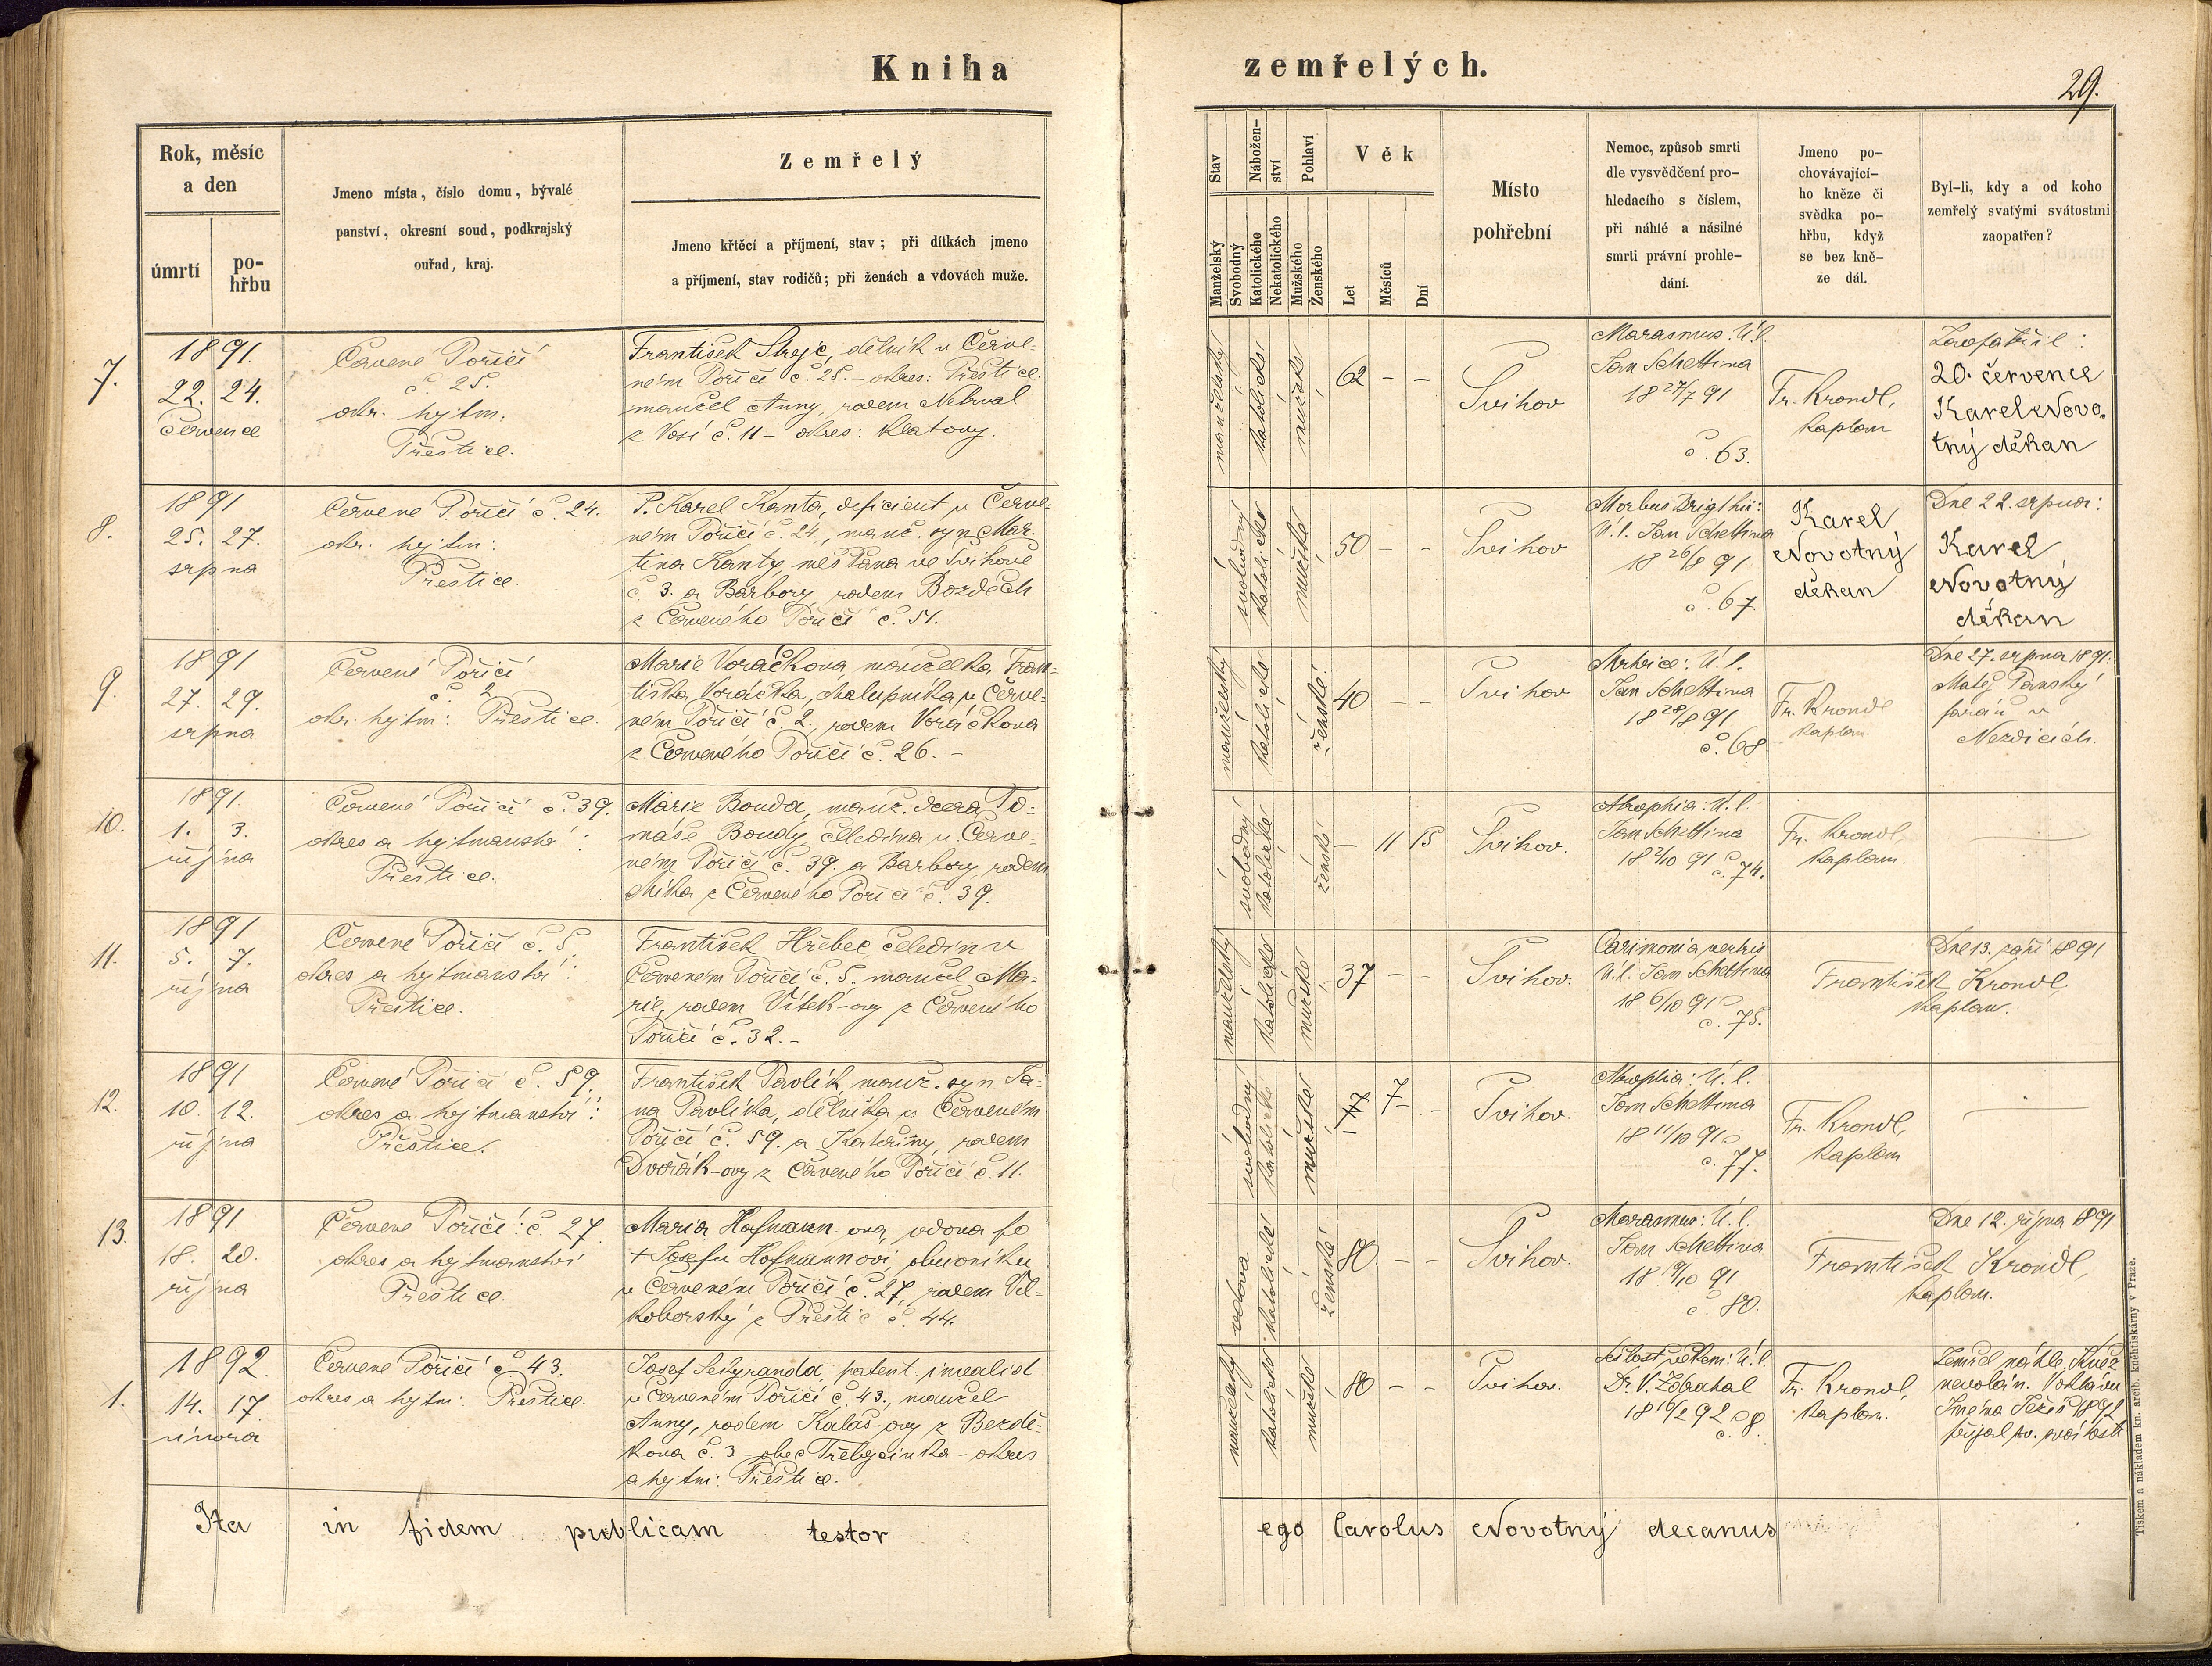 Kniha zemřelých.
29.
Rok, měsíc
a den
úmrtí
po-
hřbu
Jmeno místa, číslo domu, bývalé
panství, okresní soud, podkrajský
ouřad, kraj.
Zemřelý
Jmeno křtěcí a příjmení, stav; při dítkách jmeno
a příjmení, stav rodičů; při ženách a vdovách muže.
Stav
Manželský
Svobodný
Nábožen-
ství
Katolického
Nekatolického
Pohlaví
Mužského
Ženského
Věk
Let
Měsíců
Dní
Místo
pohřební
Nemoc, způsob smrti
dle vysvědčení pro-
hledacího s číslem,
při náhlé a násilné
smrti právní prohle-
dání.
Jmeno po-
chovávající-
ho kněze či
svědka po-
hřbu, když
se bez kně-
ze dál.
Byl-li, kdy a od koho
zemřelý svatými svátostmi
zaopatřen?
7.
1891.
22. 24.
července
Červené Poříčí
č. 25.
okr. hejtm.
Přeštice.
František Strejc, dělník v Červe-
ném Poříčí č. 25. – okres: Přeštice.
manžel Anny, rodem Nebval
č. 11 – okres: Klatovy.
manželský
katolické
mužské
62 – –
Švihov
Marasmus: Ú. l.
Jan Schettina
18 27/7 91
č. 63.
Fr. Krondl,
kaplan
Zaopatřil:
20. července
Karel Novo-
tný děkan
8.
1891
25. 27.
srpna
Červené Poříčí č. 24.
okr. hejtm:
Přeštice.
P. Karel Kanta, deficient v Červe-
ném Poříčí č. 24., manž. syn Mar-
tina Kanty, měšťana ve Švihově
č. 3. a Barbory, rodem Bozděch
z Červeného Poříčí č. 51.
svobodný
katolické
mužské
50 – –
Švihov
Morbus Brigthii:
Ú. l. Jan Schettina
18 26/8 91
č. 67.
Karel
Novotný
děkan
Dne 22. srpna:
Karel
Novotný
děkan
9.
1891
27. 29.
srpna
Červené Poříčí
č. 2
okr. hejtm: Přeštice.
Marie Voráčková, manželka Fran-
tiška Voráčka, chalupníka v Červe-
ném Poříčí č. 2., rodem Voráčkova
z Červeného Poříčí č. 26. –
manželský
katolické
ženské
40 – –
Švihov
Ú. l.
Jan Schettina
18 28/8 91
č. 68
Fr. Krondl
kaplan.
Dne 27. srpna 1891:
Matěj Panský
farář v
Nezdicích.
10.
1891.
1. 3.
října
Červené Poříčí č. 39.
okres a hejtmanství:
Přeštice.
Marie Bouda, manž. dcera To-
máše Boudy čeledína v Červe-
ném Poříčí č. 39. a Barbory, rodem
z Červeného Poříčí č. 39.
svobodný
katolické
ženské
– 11 15
Švihov.
Atrophia: Ú. l.
Jan Schettina
18 2/10 91 č. 74.
Fr. Krondl,
kaplan.
11.
1891
5. 7.
října
Červené Poříčí č. 5.
okres a hejtmanství:
Přeštice.
František Hřebec čeledín v
Červeném Poříčí č. 5. manžel Ma-
rie, rodem Vítek-ovy z Červeného
Poříčí č. 32. –
manželský
katolické
mužské
37 – –
Švihov.
Ú. l. Jan Schettina
18 6/10 91
č. 75.
František Krondl,
kaplan.
Dne 13. září 1891
12.
1891
10. 12.
října
Červené Poříčí č. 59.
okres a hejtmanství:
Přeštice.
František Pavlík manž. syn Ja-
na Pavlíka, dělníka v Červeném
Poříčí č. 59. a Kateřiny, rodem
Dvořák-ovy z Červeného Poříčí č. 11.
svobodný
katolické
mužské
7 –
Švihov.
Atrophia: Ú. l.
Jan Schettina
18 11/10 91
č. 77.
Fr. Krondl,
kaplan
13.
1891
18. 20.
října
Červené Poříčí: č. 27.
okres a hejtmanství
Přeštice
Maria Hofmann-ova, vdova po
† Josefu Hofmannovi, obuvníku
v Červeném Poříčí č. 27, rodem Vil-
koborský z Přeštic č. 44.
vdova
katolické
ženské
80 – –
Švihov.
Marasmus: Ú. l.
Jan Schettina
18 19/10 91
č. 80.
František Krondl,
kaplan.
Dne 12. října 1891
1.
1892.
14. 17.
února
Červené Poříčí č. 43.
okres a hejtm: Přeštice.
Josef patent. invalid
v Červeném Poříčí č. 43., manžel
Anny, rodem Kalaš-ovy z Bezdě-
kova č. 3 – obec Třebýcinka – okres
a hejtm: Přeštice.
manželský
katolické
mužské
80 – –
Švihov.
Sešlost věkem: Ú. l.
Dr. V.
18 16/2 92 č. 8.
Fr. Krondl,
kaplan.
Zemřel náhle. Kněz
nevolán.
Jména Ježíš 1892
přijal sv. svátosti
Ita in fidem publicam testor ego Carolus Novotný decanus
Tiskem a nákladem kn. arcib. knihtiskárny v Praze.